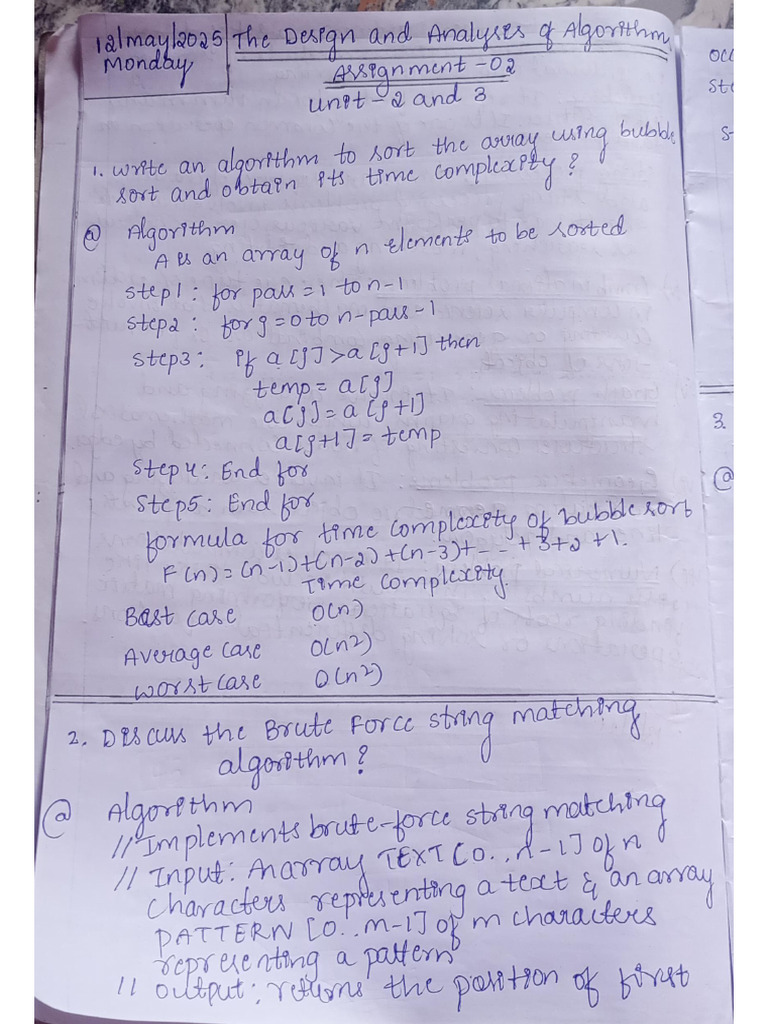 12/may/2025
Monday
The Design and Analyses of Algorithm
Assignment-02
Unit-2 and 3
1. Write an algorithm to sort the array using bubble
sort and obtain its time complexity?
@ Algorithm
A is an array of n elements to be sorted
Step1: for pass=1 to n-1
Step2: for j=0 to n-pass-1
Step3: if a[j]>a[j+1] then
temp=a[j]
a[j]=a[j+1]
a[j+1]=temp
Step4: End for
Step5: End for
formula for time complexity of bubble sort
F(n)=(n-1)+(n-2)+(n-3)+--+3+2+1.
Time complexity
Best case O(n)
Average case O(n2)
Worst case O(n2)
2. Discuss the Brute Force string matching
algorithm?
@ Algorithm
//Implements brute-force string matching
// Input: An array TEXT[0..n-1] of n
characters representing a text & an array
PATTERN [0..m-1] of m characters
representing a pattern
// output: returns the position of first
occ
ste
s-
3.
@